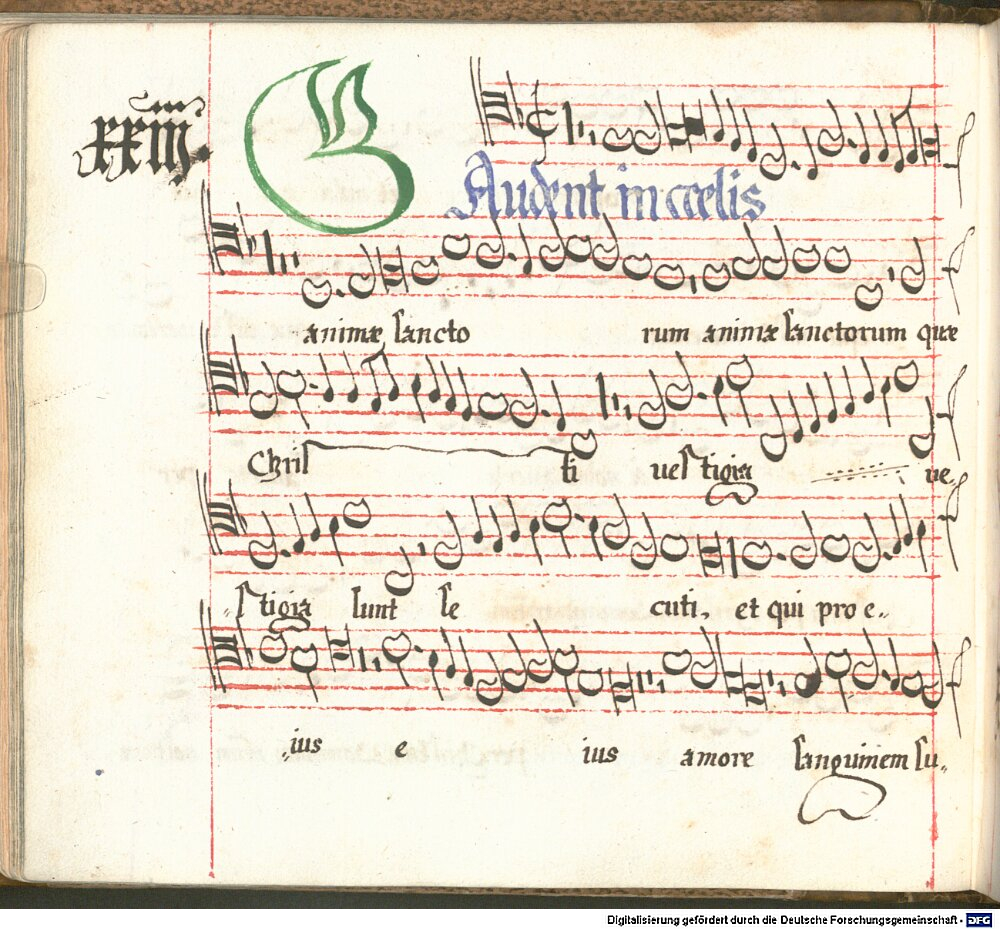 XXIIII
GAudent in cœlis
animæ sancto rum animæ sanctorum quæ
Chris ti uestigia ue
stigia sunt se cuti, et qui pro e..
ius e ius amore sanguinem su..
Digitalisierung gefördert durch die Deutsche Forschungsgemeinschaft - DFG